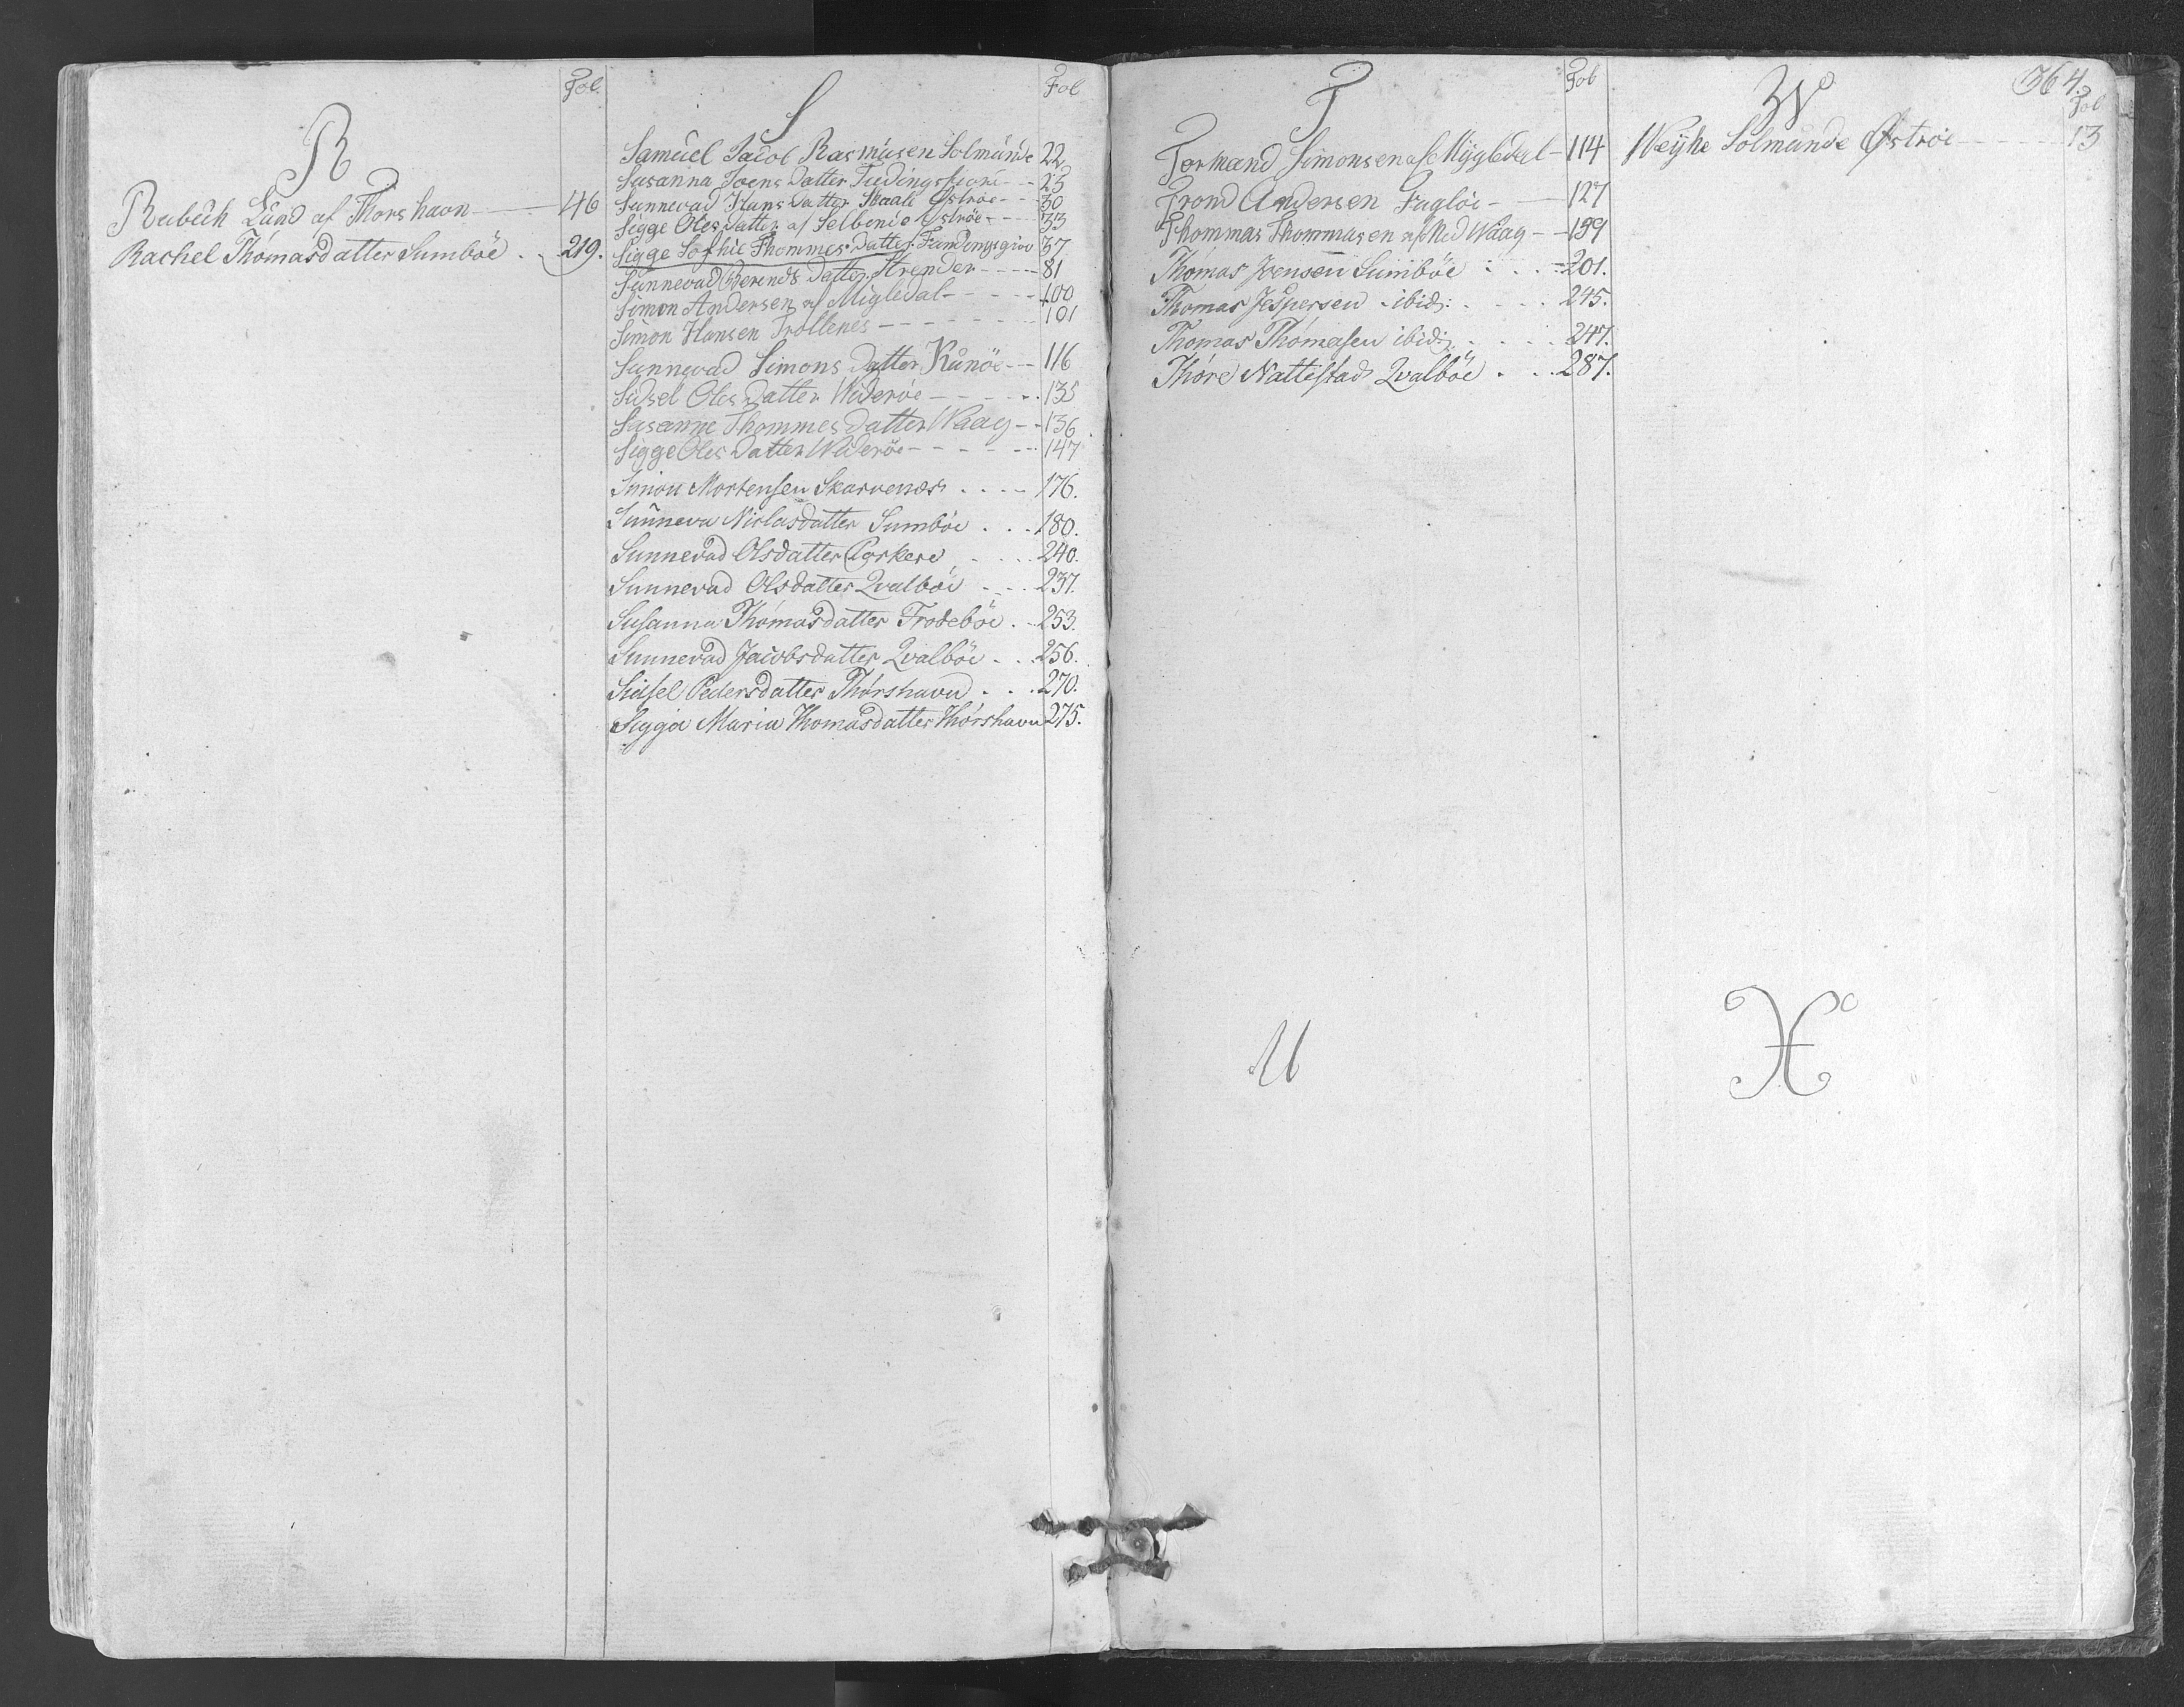 Fol.
R
Rubech Lund af Thorshavn 46
Rachel Thomasdatter Sumböe . . 219.
Fol
S
Samuel Jacob Rasmusen Solmunde 22
Susanna Joens Datter 23
Sunnevad Hans Datter Øströe - - 30
Sigge Oles Datter af Selbende Oströe - - - 33
Sigge Sophie Thommes Datter 37
Sunnevad Berends Datter Strender - - - - 81
Simon Andersen af Migledal - - - - - 100
Simon Hansen Trollenes - - - - - - 101
Sunnevad Simons Datter Kunöe - - 116
Sidsel Oles Datter Wideröe - - - - - 135
Susanne Thommes Datter Waag - - 136
Sigge Oles Datter Wideröe - - - - - - 147
Simon Mortensen Skarvenæs . . . . 176.
Sunneva Niclasdatter Sumböe . . . 180.
Sunnevad Olsdatter Porkere . . . . 240.
Sunnevad Olsdatter Qvalböe . . . . 237.
Susanna Thomasdatter Frodeböe . . 253.
Sunnevad Jacobsdatter Qvalböe . . . 256.
Sidsel Pedersdatter Thorshavn . . . 270.
Sigga Maria Thomasdatter Thorshavn 275.
Fol
T
Tormand Simonsen af Mygledal - 114
Trond Andersen Fuglöe - - 127
Thommas Thommusen af Waag - - 139
Thomas Joensen Sumböe . . . . 201.
Thomas Jespersen ibid: . . . . 245.
Thomas Thomasen ibid: . . . . 247.
Thore Nattestad Qvalböe . . . 287.
U
364.
Fol
W
Weyhe Solmunde Østroe - - - - - 13
X